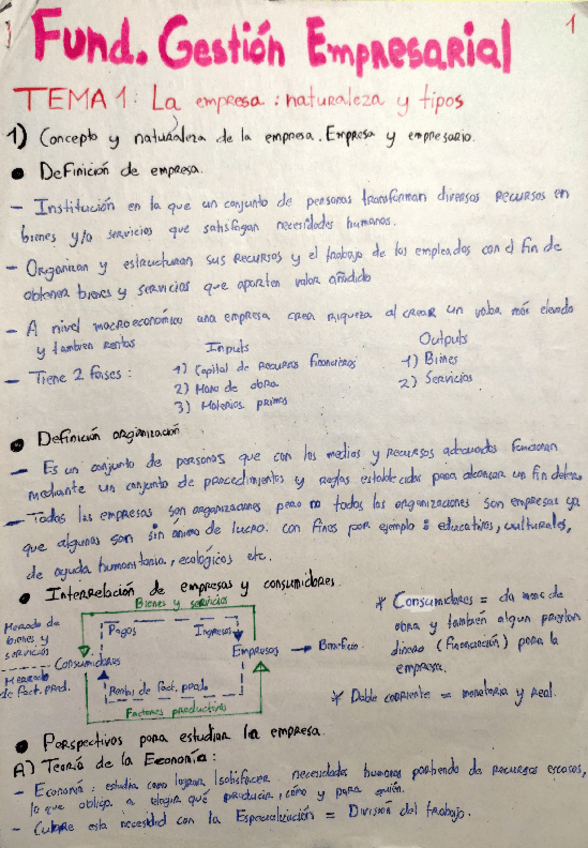 1
Fund. Gestión Empresarial
TEMA 1: La empresa: naturaleza y tipos
1) Concepto y naturaleza de la empresa. Empresa y empresario.
• Definición de empresa.
- Institución en la que un conjunto de personas transforman diversos recursos en
bienes y/o servicios que satisfagan necesidades humanas.
- Organizan y estructuran sus recursos y el trabajo de los empleados con el fin de
obtener bienes y servicios que aporten valor añadido
- A nivel macroeconómico una empresa crea riqueza al crear un valor más elevado
y tambien rentas
- Tiene 2 fases:
Inputs
1) Capital de recursos financieros
2) Mano de obra
3) Materias primas
Outputs
1) Bienes
2) Servicios
• Definición organización
- Es un conjunto de personas que con los medios y recursos adecuados funcionan
mediante un conjunto de procedimientos y reglas establecidas para alcanzar un fin
- Todas las empresas son organizaciones pero no todas las organizaciones son empresas ya
que algunas son sin ánimo de lucro: con fines por ejemplo: educativos, culturales,
de ayuda humanitaria, ecológicos etc.
• Interrelación de empresas y consumidores
Bienes y servicios
Mercado de
bienes y
servicios
Pagos Ingresos
Consumidores
Empresas → Beneficio.
Mercado
de fact. prod.
Rentas de fact. prod.
Factores productivos
* Consumidores = da mano de
obra y también algun
dinero (financiación) para la
empresa.
* Doble corriente = monetaria y real.
• Perspectivas para estudiar la empresa
A) Teoría de la Economía:
- Economía: estudia como logran satisfacer necesidades humanas partiendo de recursos escasos,
lo que obliga a elegir qué producir, cómo y para quién.
- Cubre esta necesidad con la Especialización = División del trabajo.